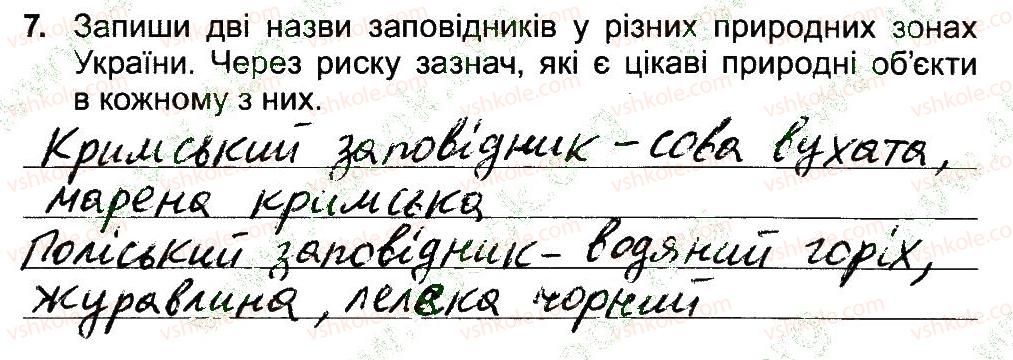 7. Запиши дві назви заповідників у різних природних зонах
України. Через риску зазнач, які є цікаві природні об'єкти
в кожному з них.
Кримський заповідник – сова вухата,
марена кримська
Поліський заповідник – водяний горіх,
журавлина, лелека чорний